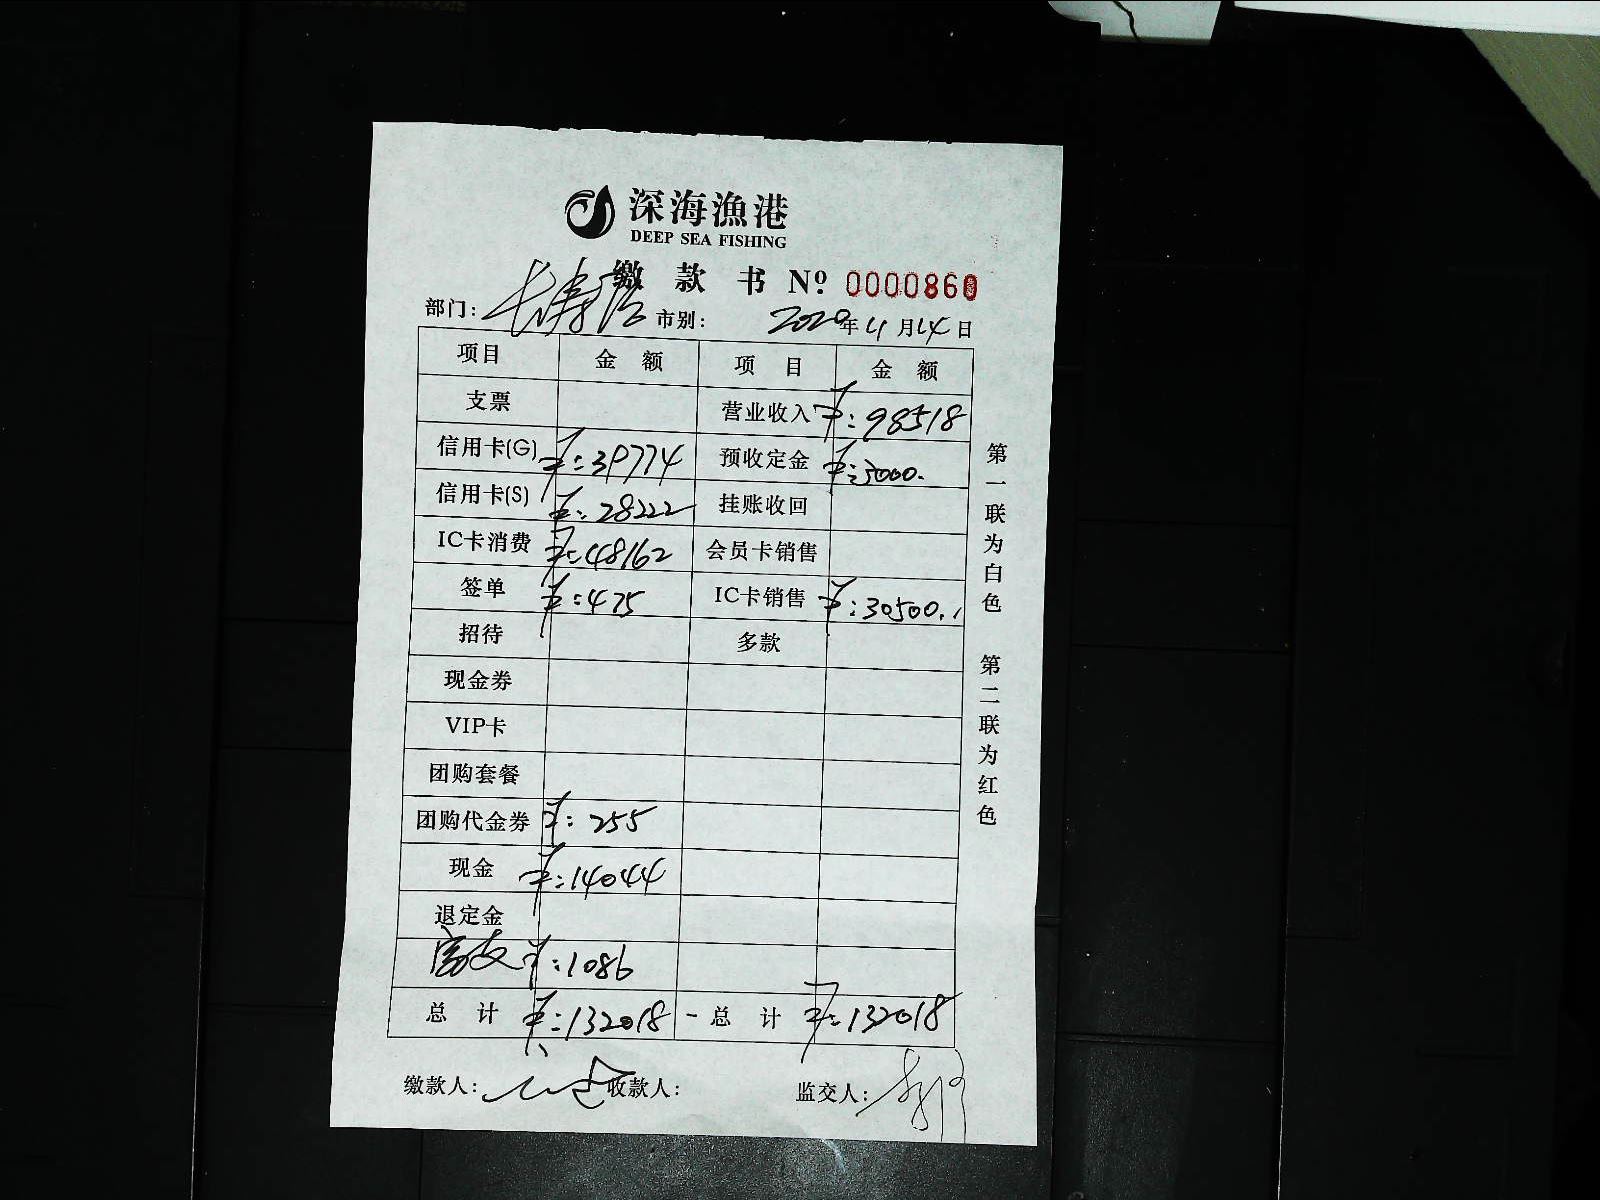 深海漁港
DEEP SEA FISHING
缴款书 Nº 0000860
部门: 长寿路 市别: 2020年11月14日
项目 金额 项目 金额
支票 营业收入 ¥:98518
信用卡(G) ¥:39774 预收定金 ¥:3000.
信用卡(S) ¥:28222 挂账收回
IC卡消费 ¥:48162 会员卡销售
签单 ¥:475 IC卡销售 ¥:30500.
招待 多款
现金券
VIP卡
团购套餐
团购代金券 ¥:255
现金 ¥:14044
退定金
¥:1086
总计 ¥:132018 总计 ¥:132018
缴款人: 收款人: 监交人:
第一联为白色 第二联为红色